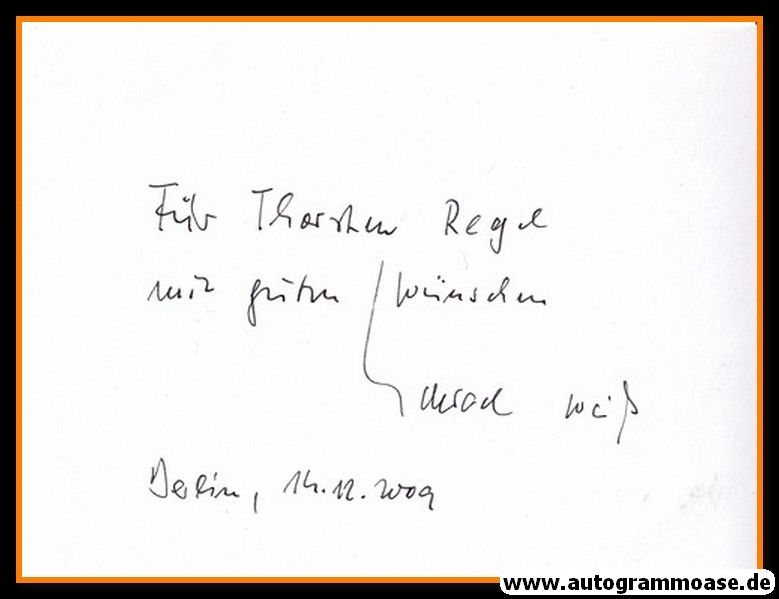 Für Thorsten Regel
mit guten Wünschen
Weiß
Berlin, 14.12.2009
www.autogrammoase.de